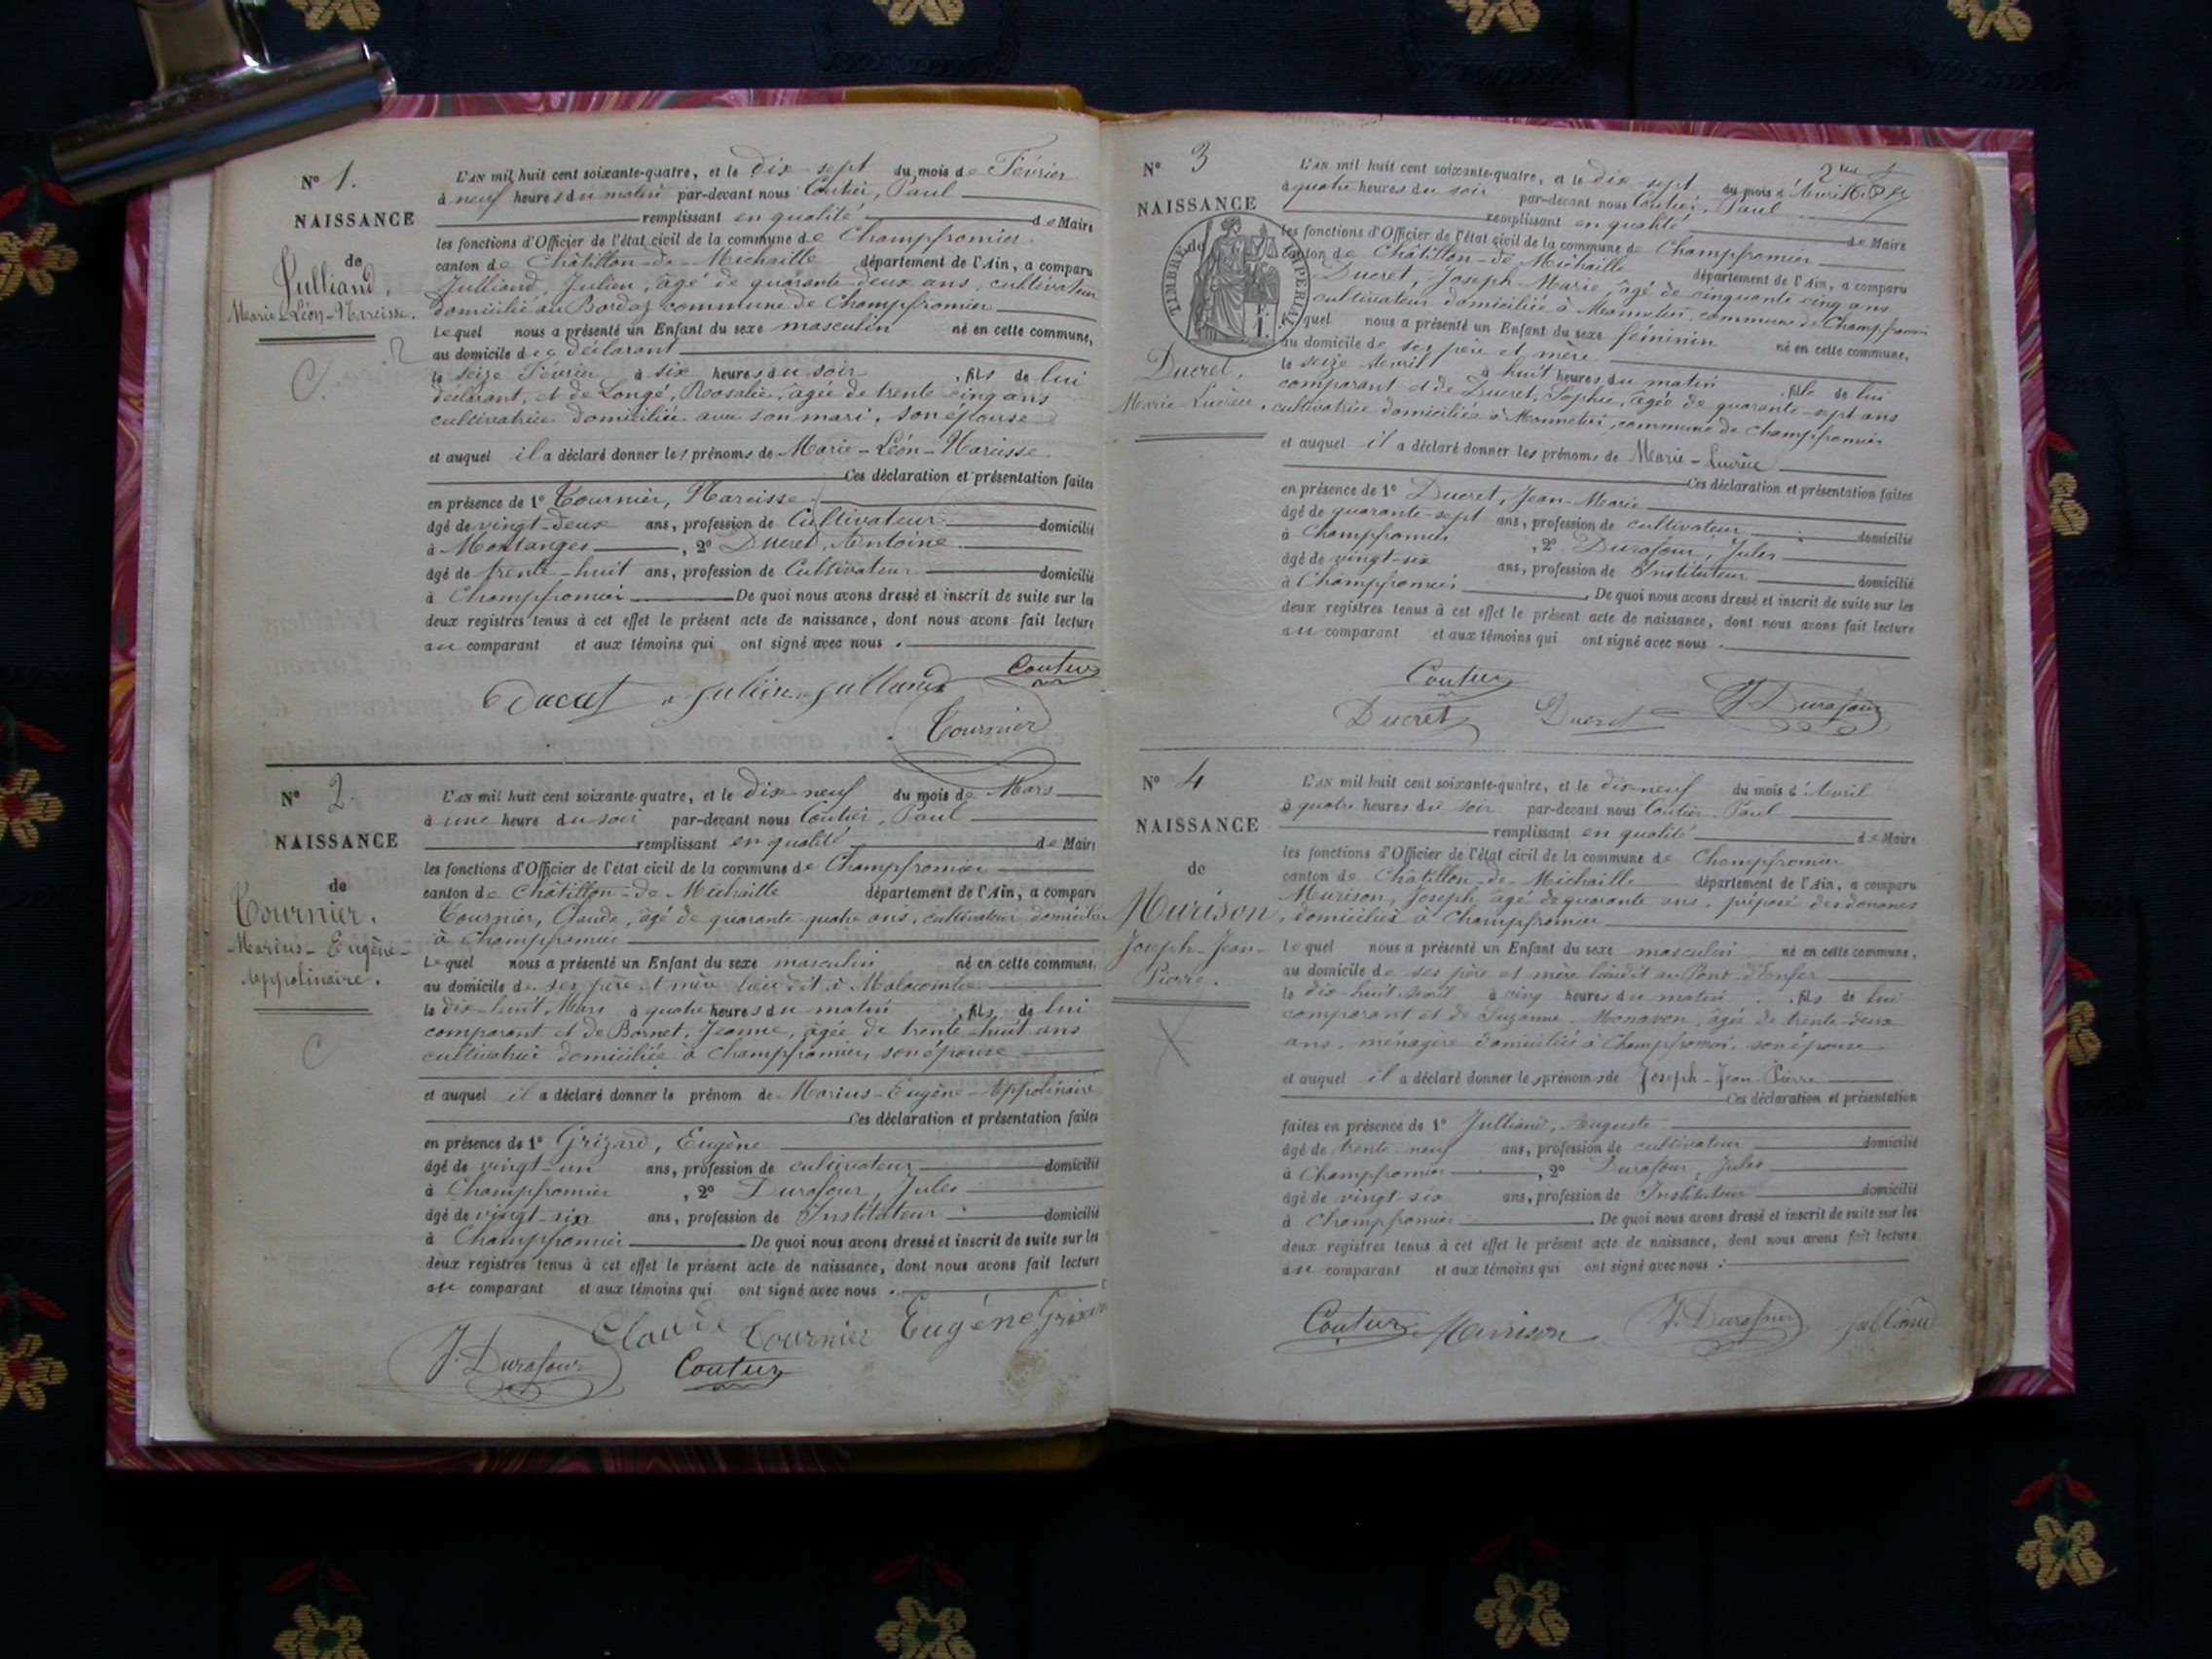 N° 1.
NAISSANCE
de
Julliand,
Marie-Léon-Narcisse.
C.
L'an mil huit cent soixante-quatre, et le dix-sept du mois de Février
à neuf heures du matin par-devant nous Coutier, Paul
remplissant en qualité de Maire
les fonctions d'Officier de l'état civil de la commune de Champfromier
canton de Châtillon-de-Michaille département de l'Ain, a comparu
Julliand, Julien, âgé de quarante-deux ans, cultivateur
domicilié au Bordaz commune de Champfromier
Lequel nous a présenté un Enfant du sexe masculin né en cette commune,
au domicile de déclarant
le seize Février à six heures du soir, fils de lui
déclarant, et de Longé, Rosalie, âgée de trente cinq ans
cultivatrice domiciliée avec son mari, son épouse
et auquel il a déclaré donner les prénoms de Marie-Léon-Narcisse
Ces déclaration et présentation faites
en présence de 1° Tournier, Narcisse
âgé de vingt-deux ans, profession de Cultivateur domicilié
à Montanges, 2° Ducret, Antoine
âgé de trente-huit ans, profession de Cultivateur domicilié
à Champfromier De quoi nous avons dressé et inscrit de suite sur les
deux registres tenus à cet effet le présent acte de naissance, dont nous avons fait lecture
au comparant et aux témoins qui ont signé avec nous.
Coutier
Julien Julliand
Tournier
N° 2.
NAISSANCE
de
Tournier.
Marius-Eugène-
Appolinaire.
C
L'an mil huit cent soixante-quatre, et le dix-neuf du mois de Mars
à une heure du soir par-devant nous Coutier, Paul
remplissant en qualité de Maire
les fonctions d'Officier de l'état civil de la commune de Champfromier
canton de Châtillon-de-Michaille département de l'Ain, a comparu
Tournier, Claude, âgé de quarante-quatre ans, cultivateur domicilié
à Champfromier
Lequel nous a présenté un Enfant du sexe masculin né en cette commune,
au domicile de ses père et mère lieu dit à Malacombe
le dix-huit Mars à quatre heures du matin, fils de lui
comparant et de Bornet, Jeanne, âgée de trente-huit ans
cultivatrice domiciliée à Champfromier, son épouse
et auquel il a déclaré donner le prénom de Marius-Eugène-Appolinaire
Ces déclaration et présentation faites
en présence de 1° Grizard, Eugène
âgé de vingt-un ans, profession de cultivateur domicilié
à Champfromier, 2° Durafour, Jules
âgé de vingt-six ans, profession de Instituteur domicilié
à Champfromier De quoi nous avons dressé et inscrit de suite sur les
deux registres tenus à cet effet le présent acte de naissance, dont nous avons fait lecture
au comparant et aux témoins qui ont signé avec nous.
Claude Tournier Eugène Grizard
J. Durafour Coutier
N° 3
NAISSANCE
TIMBRE IMPERIAL
Ducret.
Marie Lucrèce.
L'an mil huit cent soixante-quatre, et le dix-sept du mois d'Avril
à quatre heures du soir par-devant nous Coutier, Paul
remplissant en qualité de Maire
les fonctions d'Officier de l'état civil de la commune de Champfromier
canton de Châtillon-de-Michaille département de l'Ain, a comparu
Ducret, Joseph-Marie, âgé de cinquante cinq ans
cultivateur domicilié à Monnetier, commune de Champfromier
quel nous a présenté un Enfant du sexe féminin né en cette commune,
au domicile de ses père et mère
le seize Avril à huit heures du matin, fille de lui
comparant et de Ducret, Sophie, âgée de quarante-sept ans
cultivatrice domiciliée à Monnetier, commune de Champfromier
et auquel il a déclaré donner les prénoms de Marie-Lucrèce
Ces déclaration et présentation faites
en présence de 1° Ducret, Jean-Marie
âgé de quarante-sept ans, profession de cultivateur domicilié
à Champfromier, 2° Durafour, Jules
âgé de vingt-six ans, profession de Instituteur domicilié
à Champfromier De quoi nous avons dressé et inscrit de suite sur les
deux registres tenus à cet effet le présent acte de naissance, dont nous avons fait lecture
au comparant et aux témoins qui ont signé avec nous.
Coutier
Ducret Ducret J. Durafour
N° 4
NAISSANCE
de
Murison,
Joseph-Jean-
Pierre.
L'an mil huit cent soixante-quatre, et le dix-neuf du mois d'Avril
à quatre heures du soir par-devant nous Coutier, Paul
remplissant en qualité de Maire
les fonctions d'Officier de l'état civil de la commune de Champfromier
canton de Châtillon-de-Michaille département de l'Ain, a comparu
Murison, Joseph âgé de quarante ans, préposé des douanes
domicilié à Champfromier
Lequel nous a présenté un Enfant du sexe masculin né en cette commune,
au domicile de ses père et mère lieudit au Pont d'Enfer
le dix-huit Avril à cinq heures du matin, fils de lui
comparant et de Suzanne Monaven, âgée de trente-deux
ans, ménagère domiciliée à Champfromier, son épouse
et auquel il a déclaré donner les prénoms de Joseph-Jean-Pierre
Ces déclaration et présentation
faites en présence de 1° Julliand, Auguste
âgé de trente-neuf ans, profession de cultivateur domicilié
à Champfromier, 2° Durafour, Jules
âgé de vingt-six ans, profession de Instituteur domicilié
à Champfromier De quoi nous avons dressé et inscrit de suite sur les
deux registres tenus à cet effet le présent acte de naissance, dont nous avons fait lecture
au comparant et aux témoins qui ont signé avec nous.
Coutier Murison J. Durafour Julliand